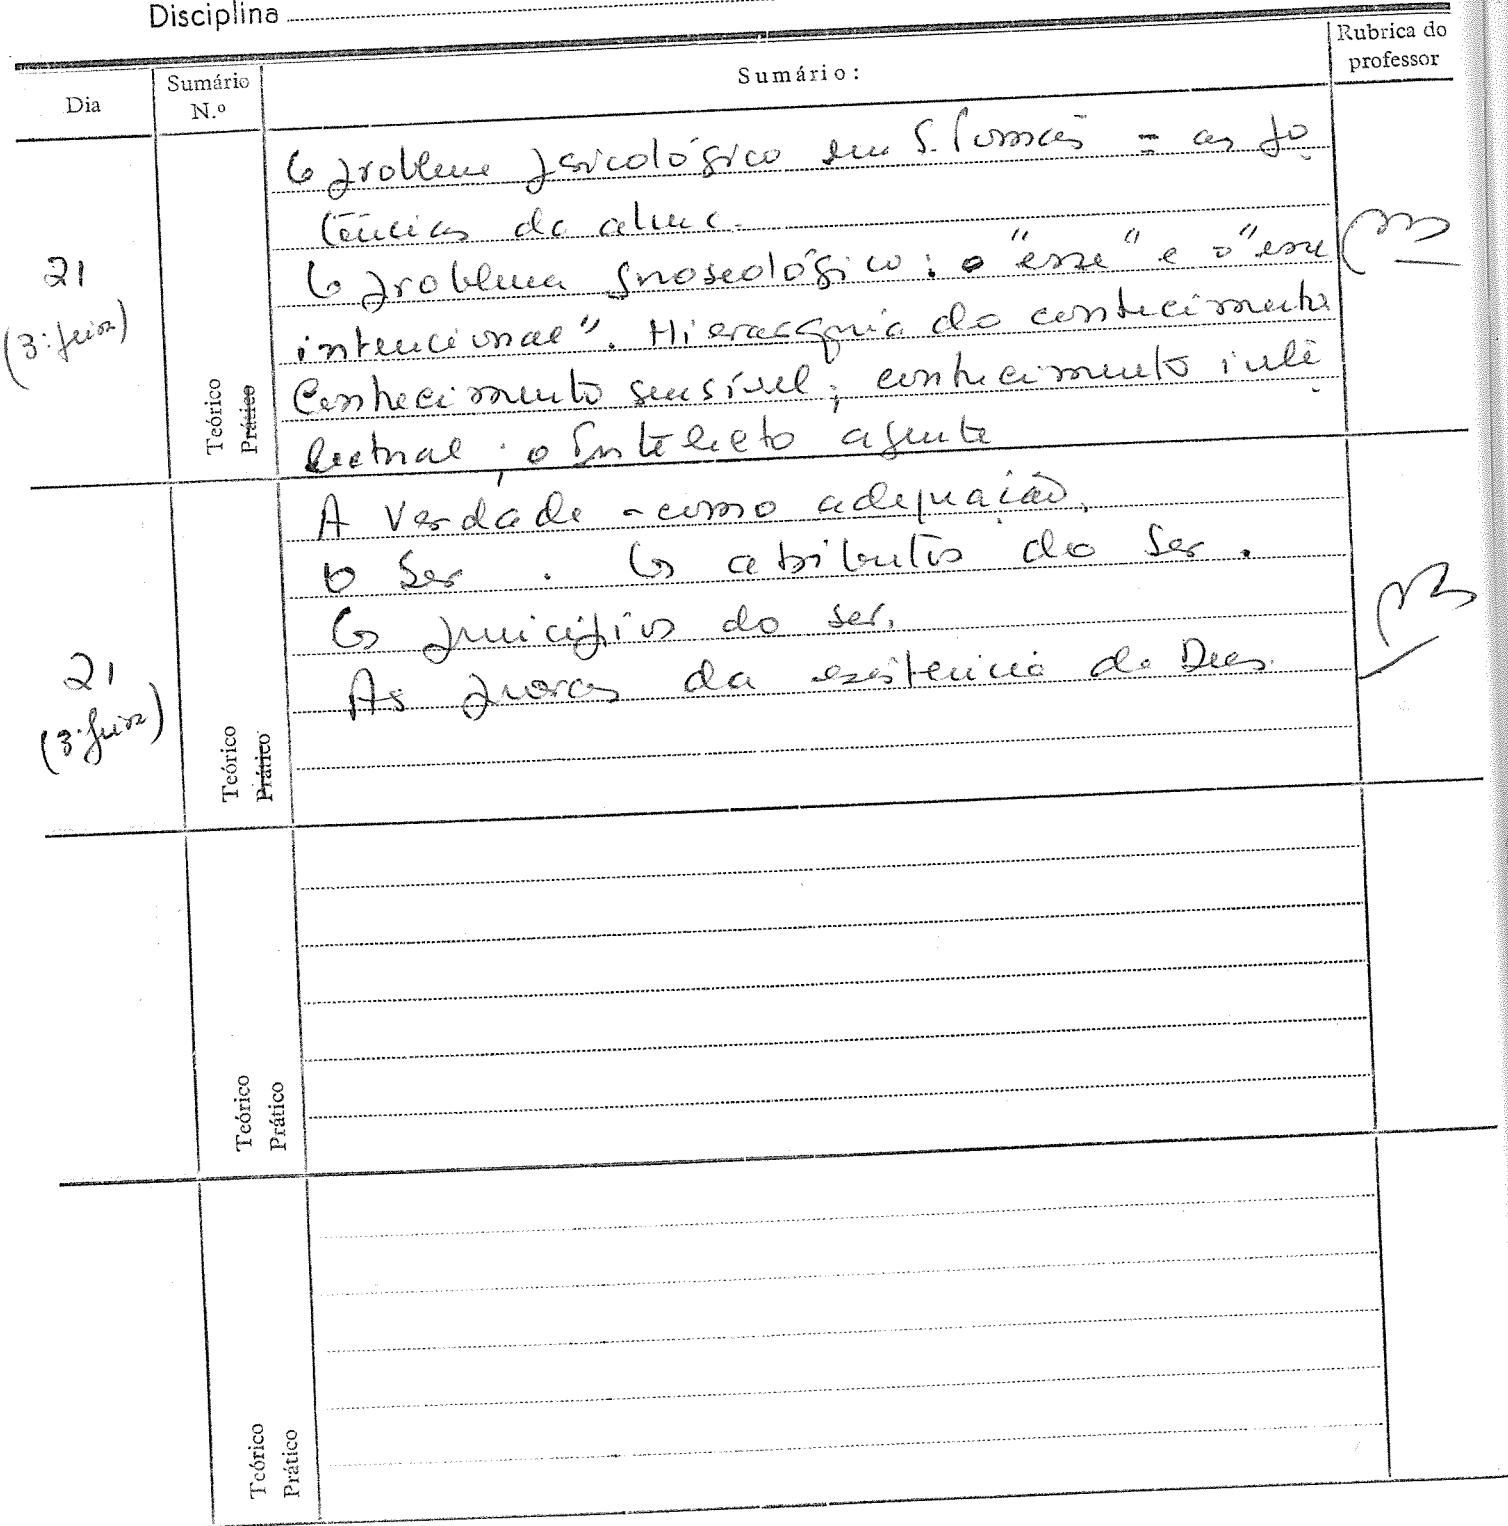 Disciplina
Dia
Sumário N.º
Sumário:
Rubrica do professor
21
(3.ª feira)
Teórico
Prático
O problema psicológico em S. Tomás = as po
tências da alma.
O problema gnoseológico: o "esse" e o "esse
intencional". Hierarquia do conhecimento
Conhecimento sensível; conhecimento inte
lectual; o Intelecto agente
21
(3.ª feira)
Teórico
Prático
A Verdade - como adequação.
O Ser. Os atributos do Ser.
Os princípios do ser.
As provas da existência de Deus.
Teórico
Prático
Teórico
Prático